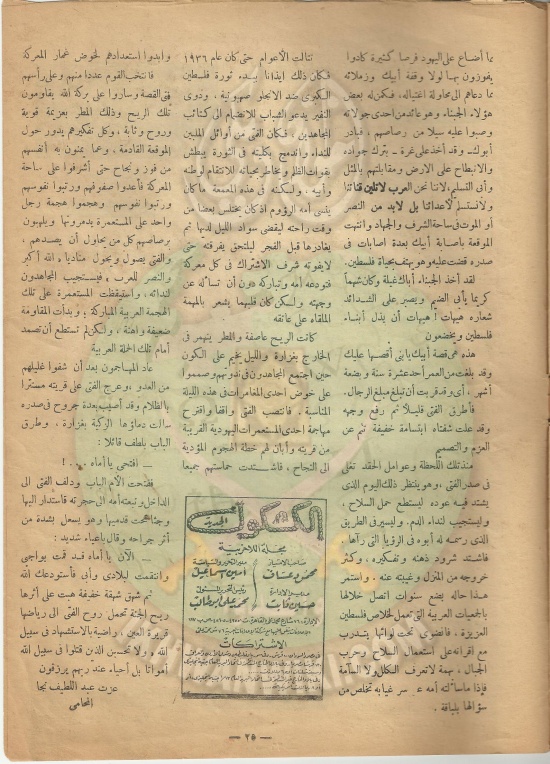 بما أضاع على اليهود فرصا كثيرة كادوا
يفوزون بها لولا وقفة أبيك وزملائه
مما دعاهم الى محاولة اغتياله، فكمن له بعض
هؤلاء الجبناء وهو عائد من احدى جولاته
وصبوا عليه سيلا من رصاصهم، فبادر
أبوك ـ وقد أخذ على غرة ـ بترك جواده
والانبطاح على الارض ومقابلتهم بالمثل
وأبى التسليم، لاننا نحن العرب لا تلين قناتنا
ولا نستسلم لأعدائنا بل لابد من النصر
أو الموت في ساحة الشرف والجهاد وانتهت
الموقعة باصابة أبيك بعدة اصابات في
صدره قضت عليه وهو يهتف بحياة فلسطين.
لقد أخذ الجبناء أباك غيلة وكان شهما
كريما يأبى الضيم ويصبر على الشدائد
شعاره هيهات! هيهات أن يذل أبناء
فلسطين ويخضعون
هذه هي قصة أبيك يا بنى أقصها عليك
وقد بلغت من العمر احدى عشرة سنة وبضعة
أشهر، أى وقد قربت أن تبلغ مبلغ الرجال.
فأطرق الفتى قليلا ثم رفع وجهه
وقد علت شفتاه ابتسامة خفيفة تنم عن
العزم والتصميم
منذ تلك اللحظة وعوامل الحقد تغلى
في صدر الفتى، وهو ينتظر ذلك اليوم الذى
يشتد فيه عوده ليستطع حمل السلاح،
وليستجيب لنداء الدم. وليسير في الطريق
الذى رسمه له أبوه في الرؤيا التى رآها.
فاشتد شرود ذهنه وتفكيره، وكثر
خروجه من المنزل وغيبته عنه. واستمر
هذا حاله بضع سنوات اتصل خلالها
بالجمعيات العربية التى تعمل لخلاص فلسطين
العزيزة، فانضوى تحت لوائها يتدرب
مع اقرانه على استعمال السلاح وحرب
الجبال، بهمة لا تعرف الكلل ولا السآمة
فإذا ما سألته أمه عن سر غيابه تخلص من
سؤالها بلباقة.
تتالت الأعوام حتى كان عام ١٩٣٦
فكان ذلك ايذانا ببدء ثورة فلسطين
الكبرى ضد الانجلو صهيونية، ودوى
النفير يدعو الشباب للانضمام الى كتائب
المجاهدين، فكان الفتى من أوائل الملبين
للنداء واندمج بكليته في الثورة يبطش
بقوات الظلم ويخاطر بحياته للانتقام لوطنه
وأبيه. ولكنه في هذه المعمعة ما كان
ينسى أمه الرؤوم اذ كان يختلس بعضا من
وقت راحته ليقضى سواد الليل لديها ثم
يغادرها قبل الفجر ليلتحق بفرقته حتى
لا يفوته شرف الاشتراك في كل معركة
فتودعه أمه وتباركه دون أن تسأله عن
وجهته والسكن كان قلبها يشعر بالمهمة
الملقاه على عاتقه
كانت الريح عاصفة والمطر ينهمر في
الخارج بغزارة والليل يخيم على الكون
حين اجتمع المجاهدون في ندوتهم وصمموا
على خوض احدى المغامرات في هذه الليلة
المناسبة. فانتصب الفتى واقفا واقترح
مهاجمة احدى المستعمرات اليهودية القريبة
من قريته وأبان لهم خطة الهجوم المؤدية
الى النجاح، فاشتدت حماستهم جميعا
الكشكول الجديد
مجلة اللاحزبية
صاحب الامتياز
محمود عساف
أمين اسماعيل
مدير الادارة
حسين ثابت
رئيس التحرير المسئول
محمد على أبو طالب
الاشتراكات
وابدوا استعدادهم لخوض غمار المعركة
فانتخب القوم عددا منهم وعلى رأسهم
فتى القصة وساروا على بركة الله يقاومون
تلك الريح وذلك المطر بعزيمة قوية
وروح وثابة، وكل تفكيرهم يدور حول
الموقعة القادمة، وعما يمنون به أنفسهم
من فوز ونجاح حتى أشرفوا على ساحة
المعركة فأعدوا صفوفهم ورتبوا نفوسهم
ورتبوا نفوسهم وهجموا هجمة رجل
واحد على المستعمرة يدمرونها ويلهبون
برصاصهم كل من يحاول أن يصدهم،
والفتى يصول ويجول مناديا: الله أكبر
والنصر للعرب، فيستجيب المجاهدون
لندائه، واستيقظت المستعمرة على تلك
الهجمة العربية المباركة. وبدأت المقاومة
ضعيفة واهنة، ولكن لم تستطع أن تصمد
أمام تلك الحملة العربية
عاد المهاجمون بعد أن شفوا غليلهم
من العدو، وعرج الفتى على قريته مستترا
بالظلام وقد أصيب بعدة جروح في صدره
سالت دماؤها الزكية بغزارة، وطرق
الباب بلطف قائلا:
ـ افتحى يا أماه ..!
ففتحت الأم الباب ودلف الفتى الى
الداخل وتبعته أمه الى حجرته فاستدار اليها
وجثا تحت قدميها وهو يسعل بشدة من
أثر جراحه وقال باعياء شديد:
ـ الآن يا أماه قد قمت بواجبى
وانتقمت لبلادى وأبى فأستودعك الله
ثم شهق شهقة خفيفة هبت على أثرها
ريح الجنة تحمل روح الفتى الى رياضها
قريرة العين، راضية بالاستشهاد في سبيل
الله. ولا تحسبن الذين قتلوا في سبيل الله
أمواتا بل أحياء عند ربهم يرزقون
عزت عبد اللطيف نجا
المحامى
ـ ٢٥ ـ